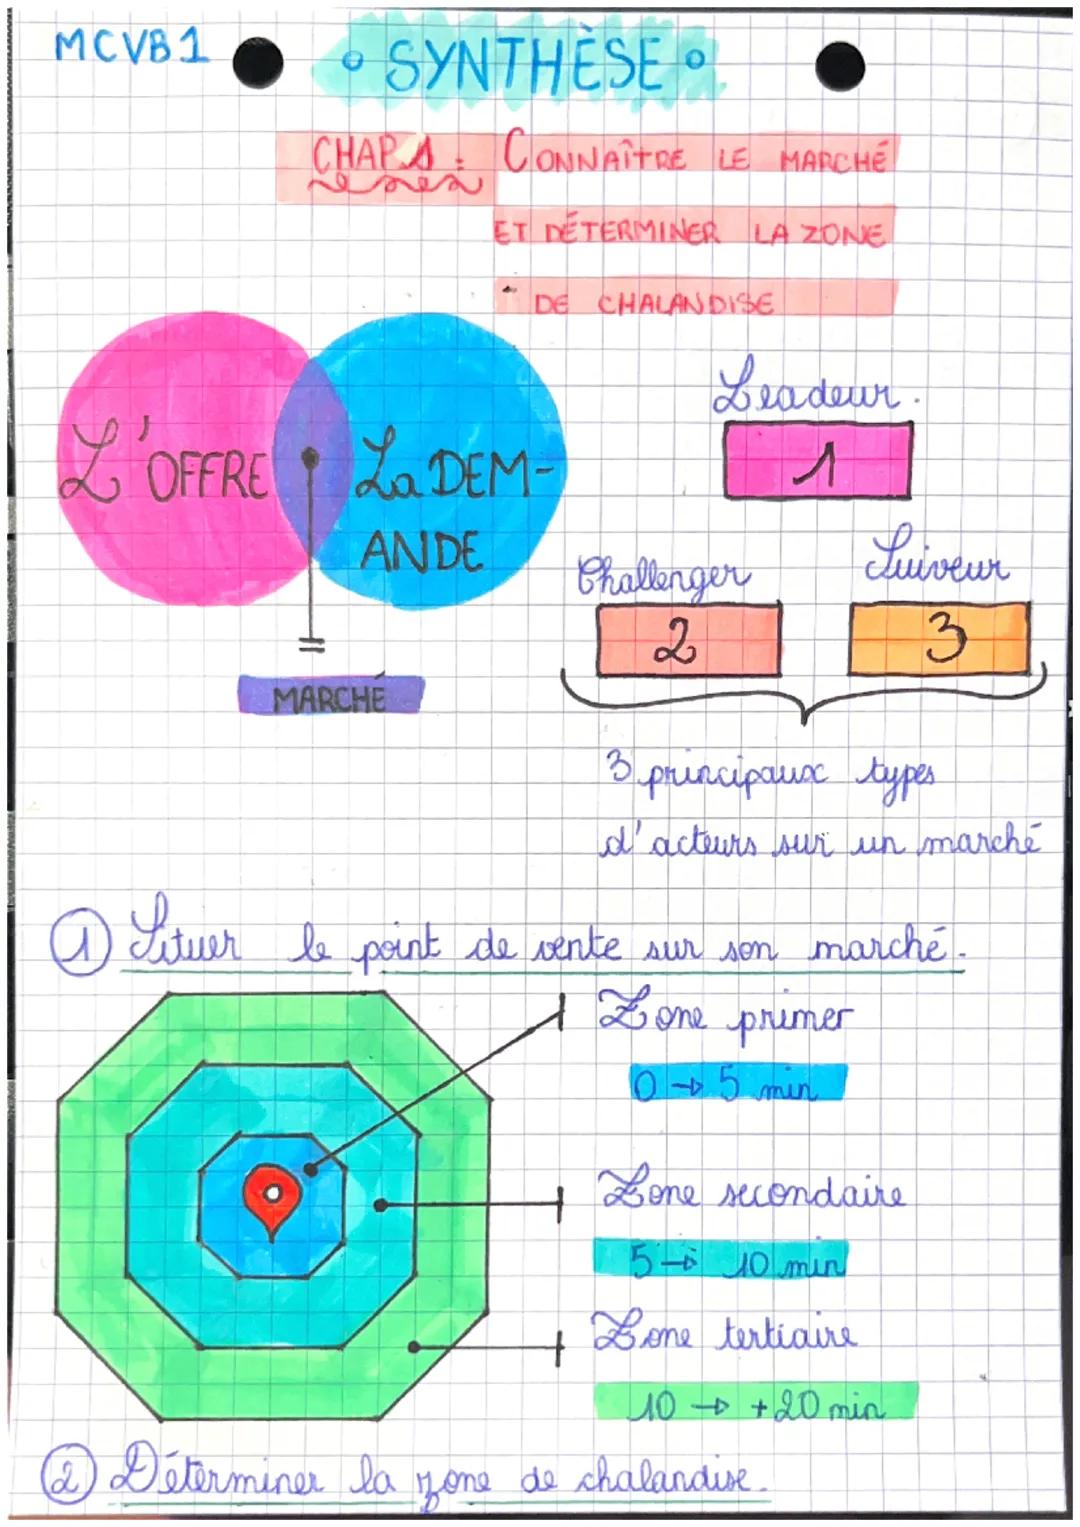 MCVB1
° SYNTHÈSE °
CHAP 1 : CONNAÎTRE LE MARCHÉ
ET DÉTERMINER LA ZONE
DE CHALANDISE
L'OFFRE
La DEM-
ANDE
=
MARCHÉ
Leadeur.
1
Challenger
2
Suiveur
3
3 principaux types
d'acteurs sur un marché
1 Situer le point de vente sur son marché.
Zone primer
0 → 5 min
Zone secondaire
5 → 10 min
Zone tertiaire
10 → +20 min
2 Déterminer la zone de chalandise.